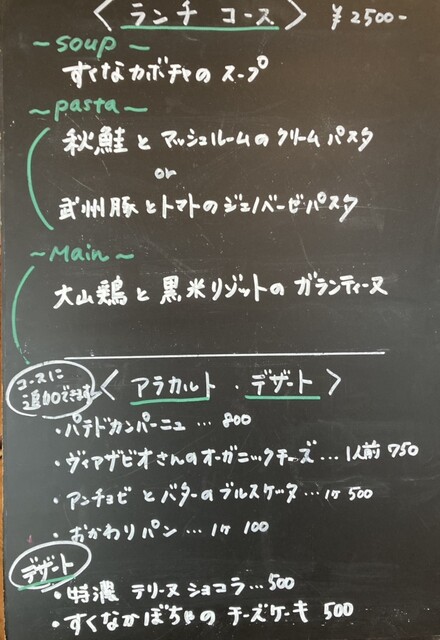 〈 ランチ コース 〉 ¥2500-
~soup~
すくなカボチャの スープ
~pasta~
秋鮭と マッシュルームの クリーム パスタ
or
武州豚とトマトのジェノベーゼパスタ
~Main~
大山鶏と 黒米リゾットの ガランティーヌ
コースに
追加できます
〈 アラカルト ・ デザート 〉
・パテドカンパーニュ … 800
・ヴィアザビオさんのオーガニックチーズ … 1人前 750
・アンチョビ とバターのブルスケッタ … 1ケ 500
・おかわり パン … 1ケ 100
デザート
・特濃 テリーヌ ショコラ … 500
・すくなかぼちゃの チーズケーキ 500